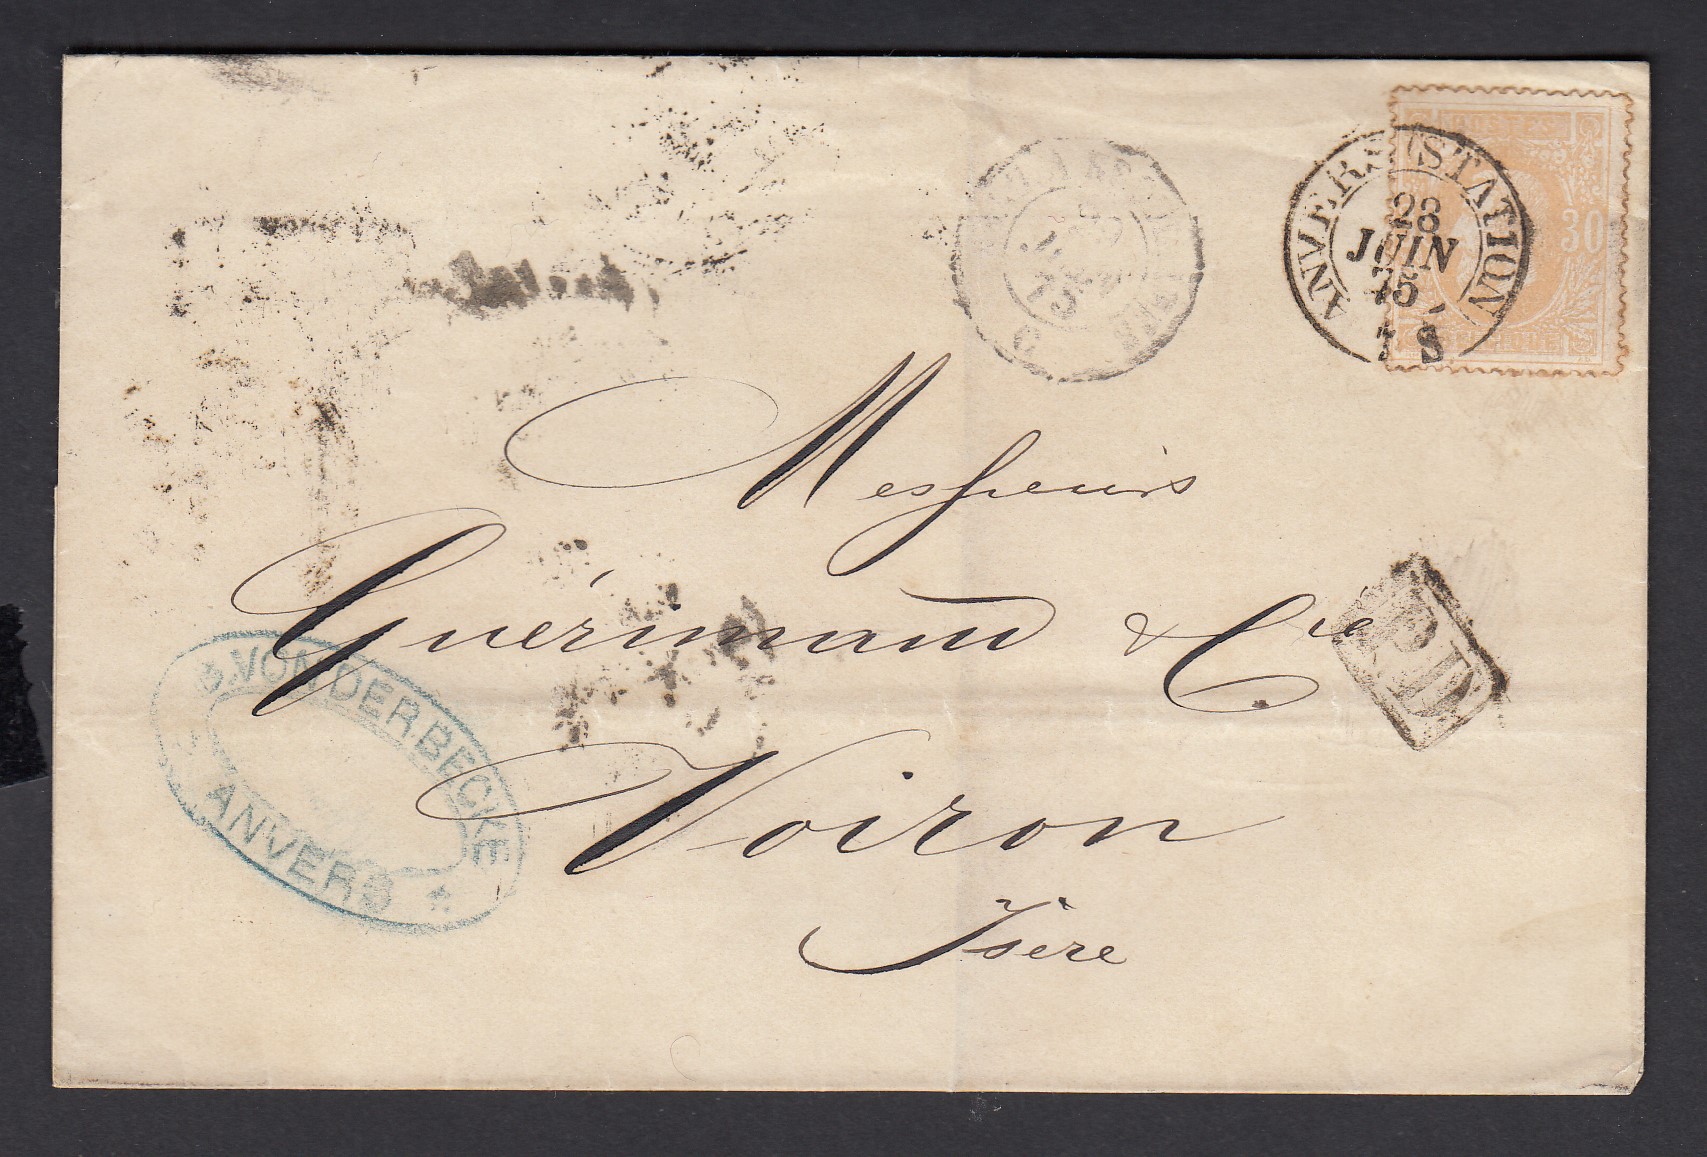 POSTES
30
BELGIQUE
ANVERS STATION
28
JUIN
75
7 S
75
Messieurs
Guérimand & Cie
Voiron
Isère
PD
VONDERBECKE
ANVERS